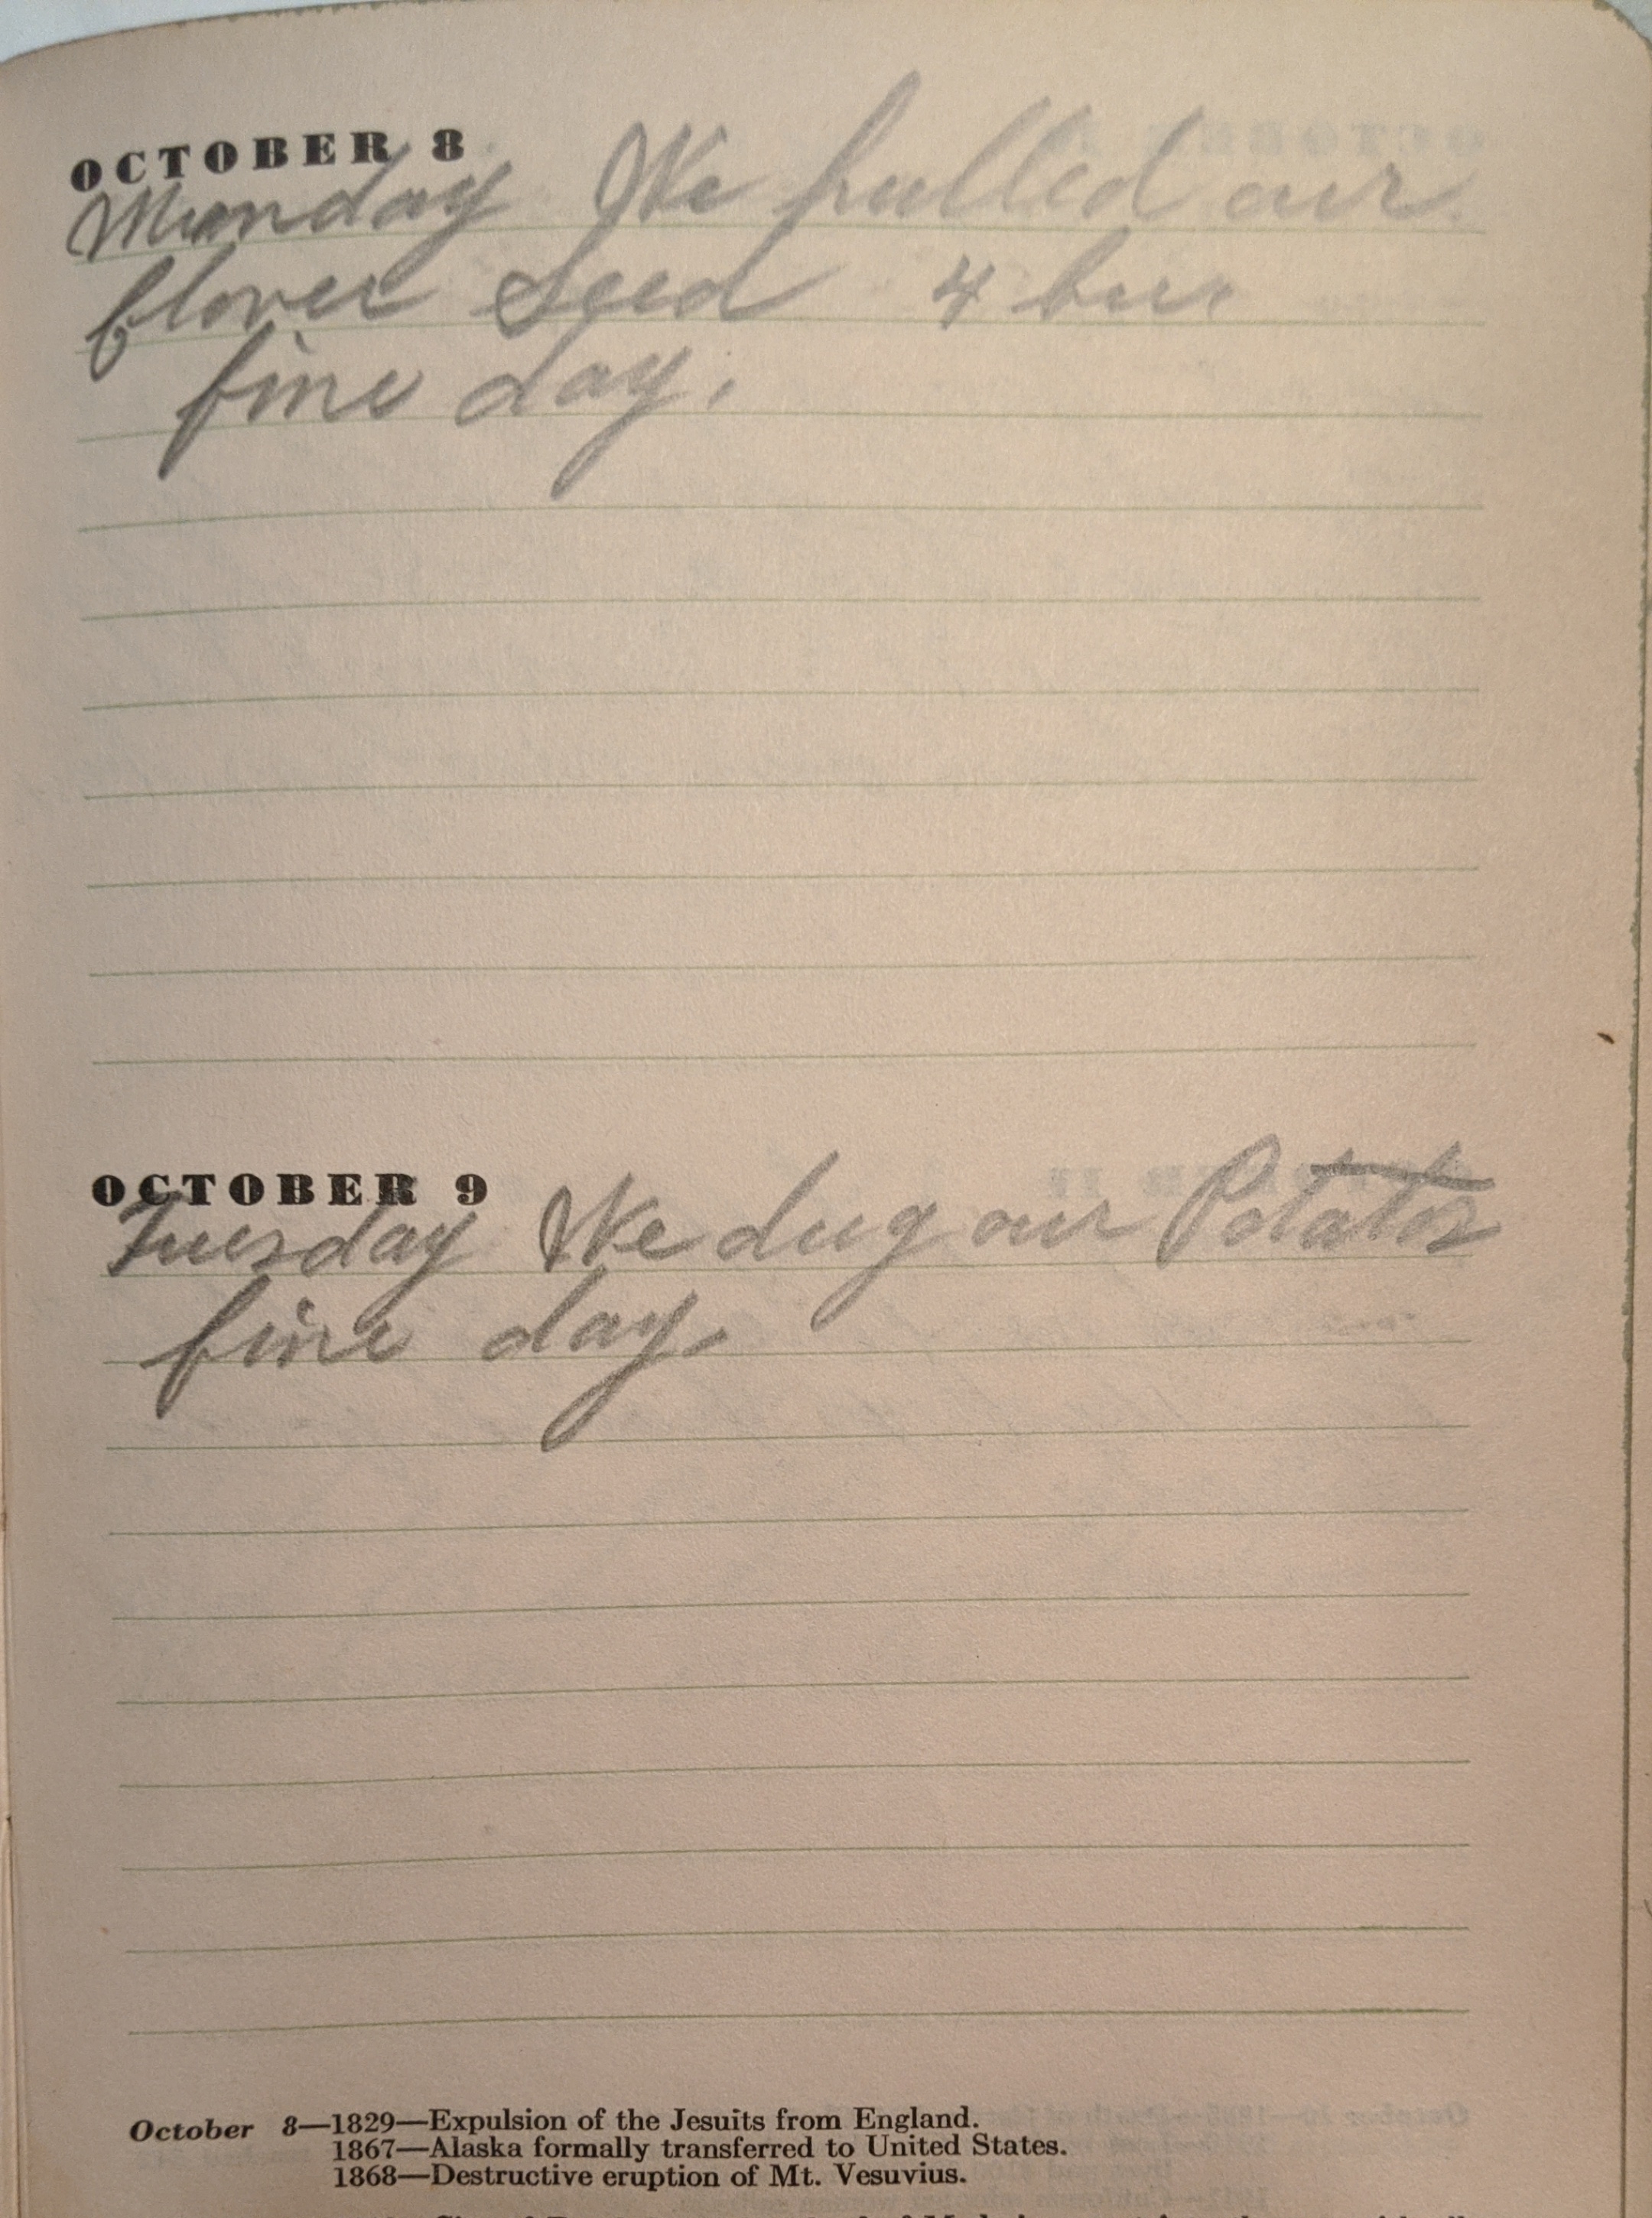 OCTOBER 8
Monday We hulled our
Clover Seed 4 bu.
fine day.
OCTOBER 9
Tuesday We dug our Potatos
fine day.
October 8—1829—Expulsion of the Jesuits from England.
1867—Alaska formally transferred to United States.
1868—Destructive eruption of Mt. Vesuvius.